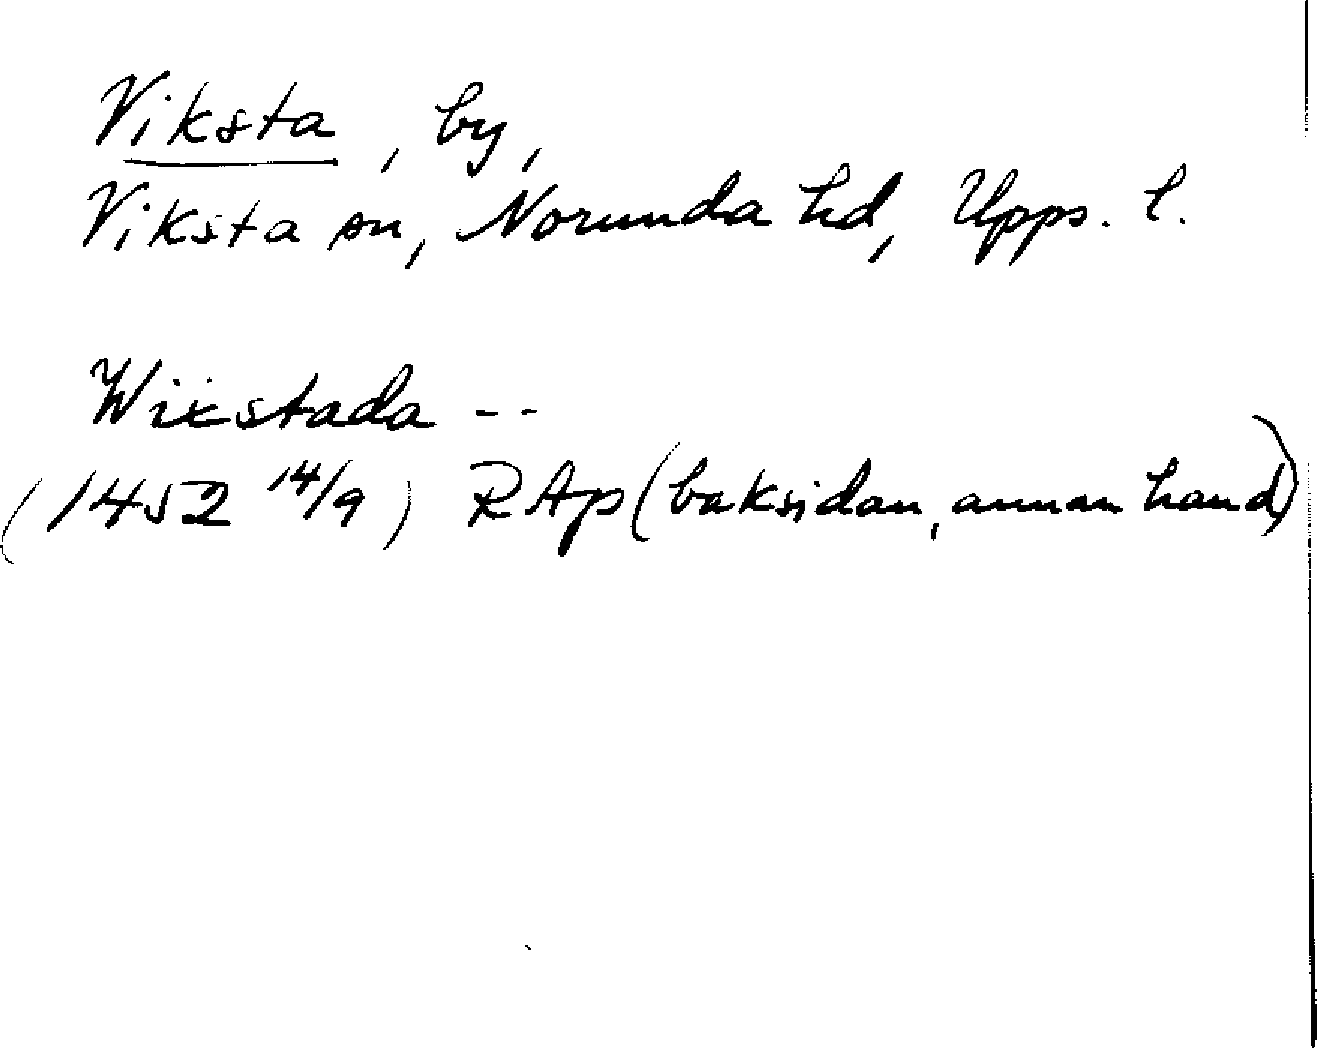 Viksta, by,
Viksta sn, Norunda hd, Upps. l.
Wicstada --
(1452 14/9) RAp (baksidan, annan hand)